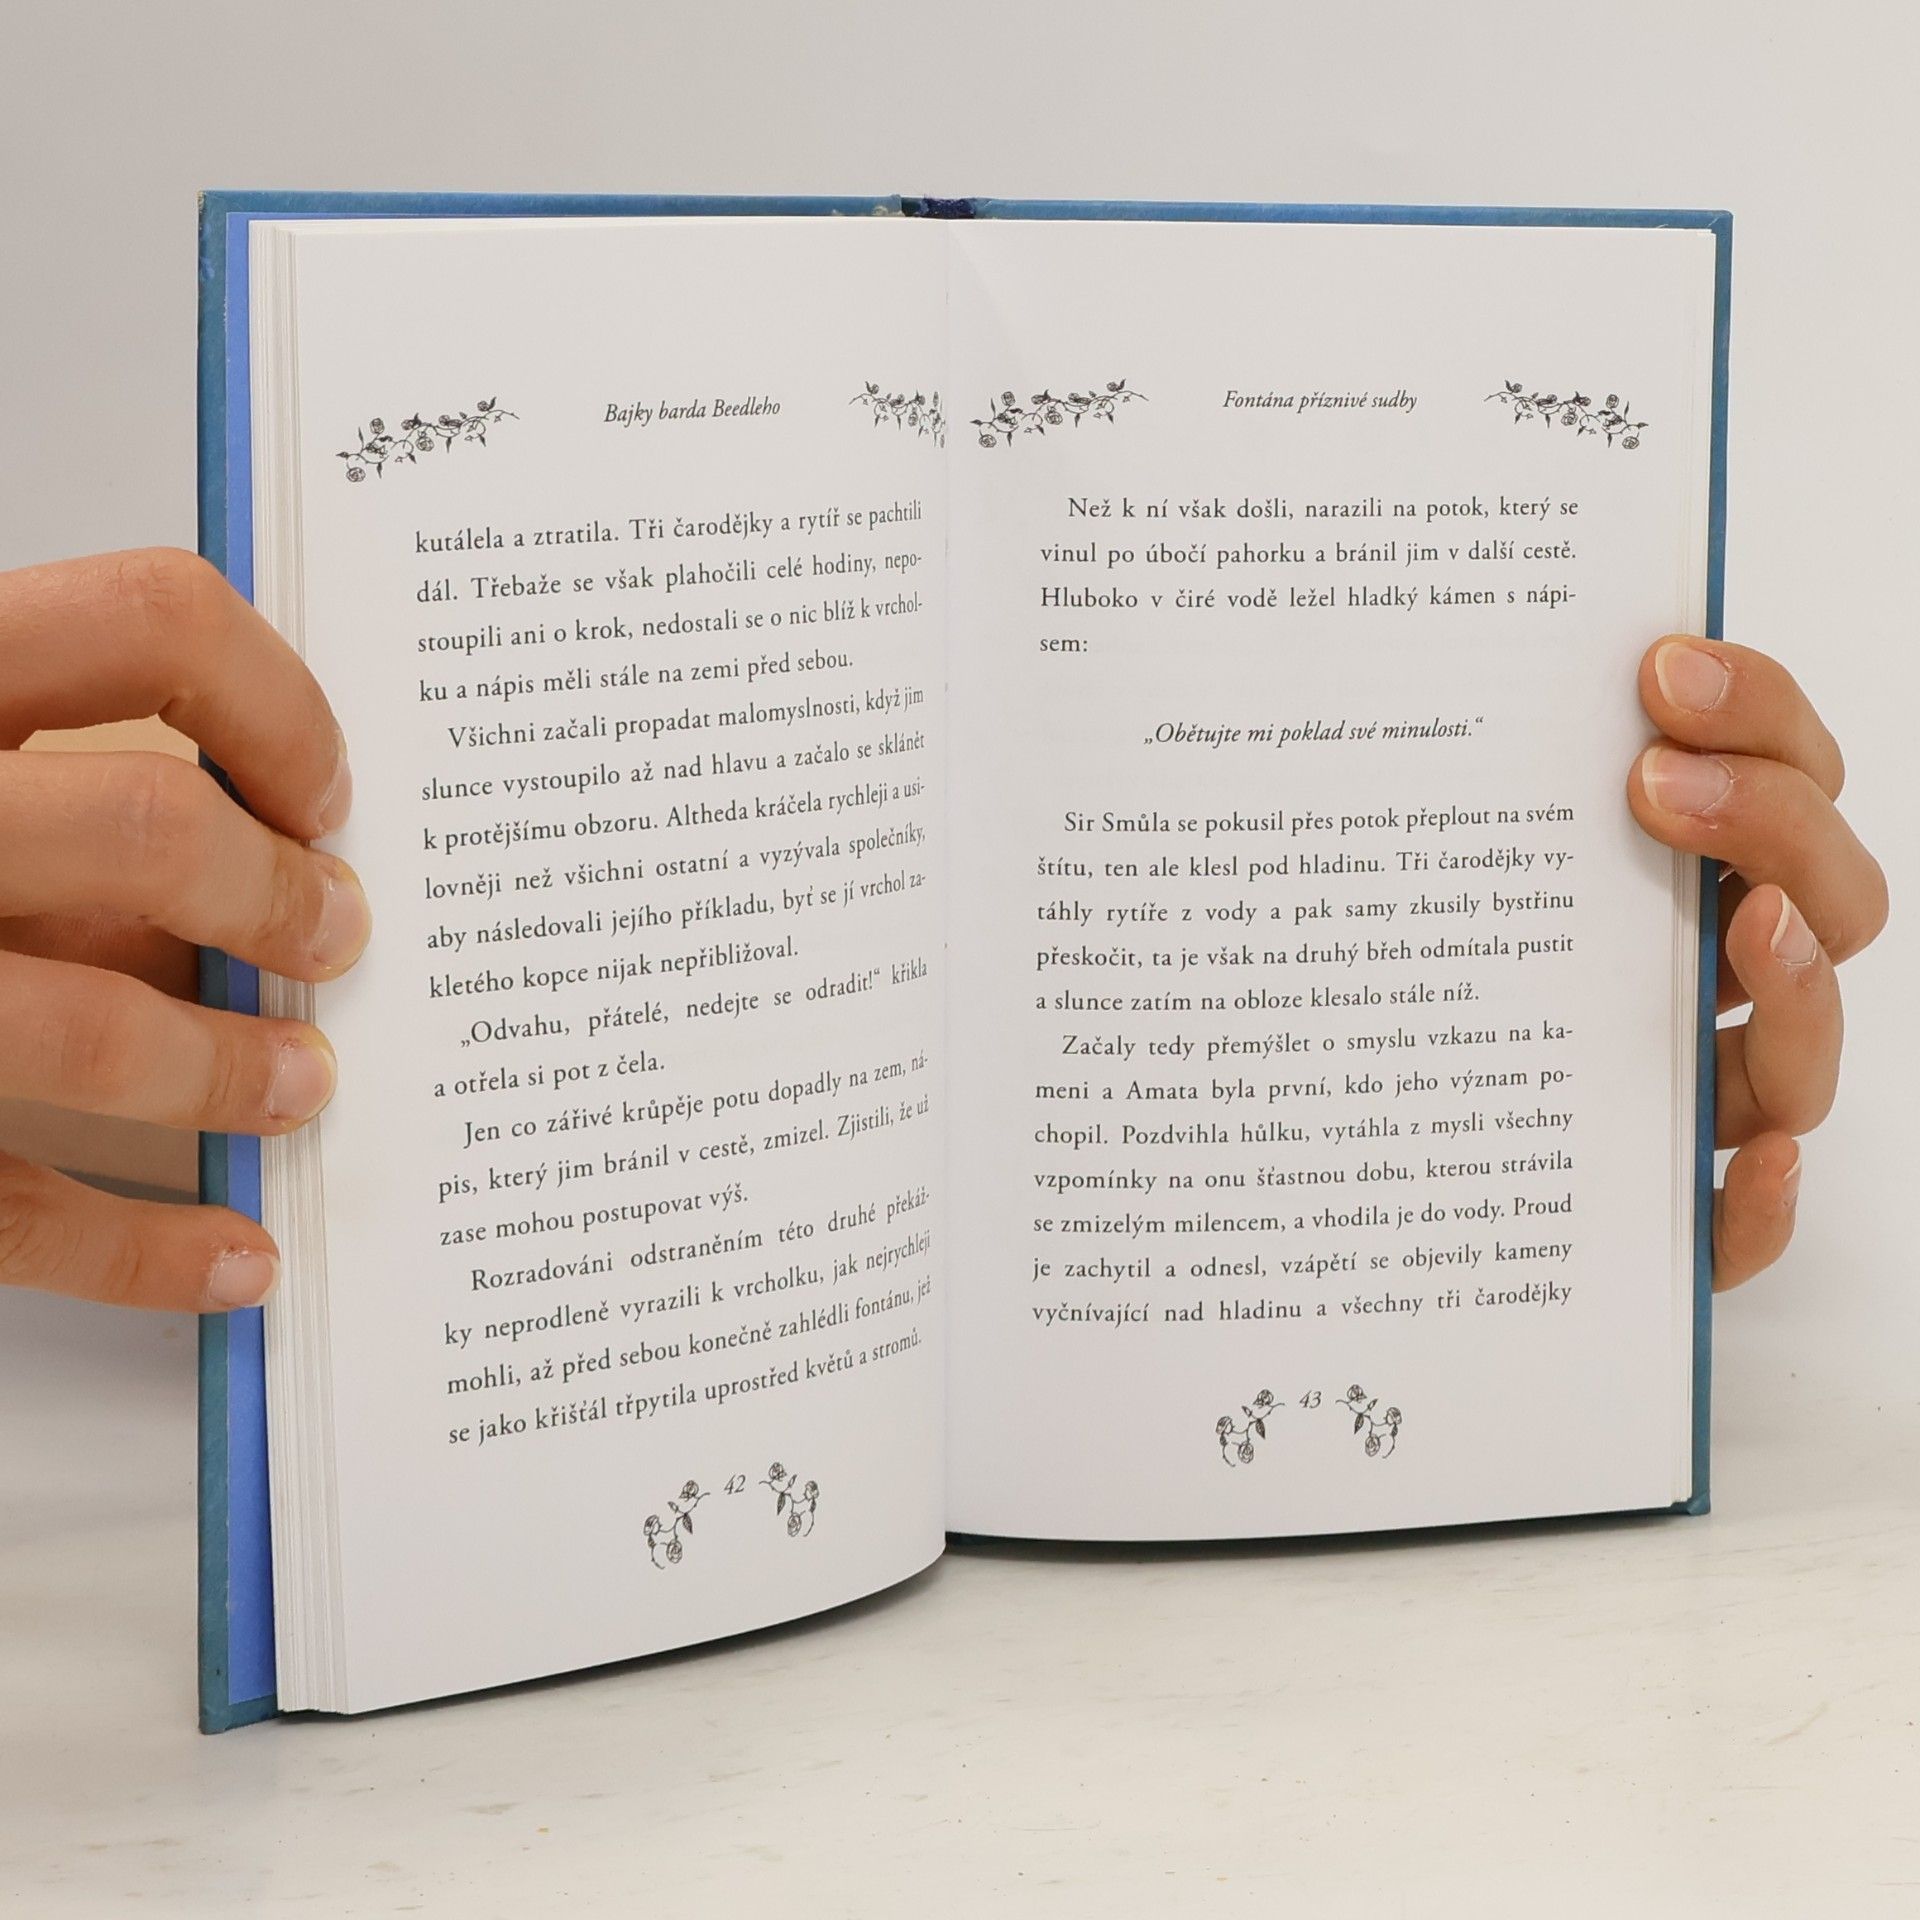 Bajky barda Beedleho
kutálela a ztratila. Tři čarodějky a rytíř se pachtili
dál. Třebaže se však plahočili celé hodiny, nepo-
stoupili ani o krok, nedostali se o nic blíž k vrchol-
ku a nápis měli stále na zemi před sebou.
Všichni začali propadat malomyslnosti, když jim
slunce vystoupilo až nad hlavu a začalo se sklánět
k protějšímu obzoru. Altheda kráčela rychleji a usi-
lovněji než všichni ostatní a vyzývala společníky,
aby následovali jejího příkladu, byť se jí vrchol za-
kletého kopce nijak nepřibližoval.
„Odvahu, přátelé, nedejte se odradit!“ křikla
a otřela si pot z čela.
Jen co zářivé krůpěje potu dopadly na zem, ná-
pis, který jim bránil v cestě, zmizel. Zjistili, že už
zase mohou postupovat výš.
Rozradováni odstraněním této druhé překáž-
ky neprodleně vyrazili k vrcholku, jak nejrychleji
mohli, až před sebou konečně zahlédli fontánu, jež
se jako křišťál třpytila uprostřed květů a stromů.
42
Fontána příznivé sudby
Než k ní však došli, narazili na potok, který se
vinul po úbočí pahorku a bránil jim v další cestě.
Hluboko v čiré vodě ležel hladký kámen s nápi-
sem:
„Obětujte mi poklad své minulosti.“
Sir Smůla se pokusil přes potok přeplout na svém
štítu, ten ale klesl pod hladinu. Tři čarodějky vy-
táhly rytíře z vody a pak samy zkusily bystřinu
přeskočit, ta je však na druhý břeh odmítala pustit
a slunce zatím na obloze klesalo stále níž.
Začaly tedy přemýšlet o smyslu vzkazu na ka-
meni a Amata byla první, kdo jeho význam po-
chopil. Pozdvihla hůlku, vytáhla z mysli všechny
vzpomínky na onu šťastnou dobu, kterou strávila
se zmizelým milencem, a vhodila je do vody. Proud
je zachytil a odnesl, vzápětí se objevily kameny
vyčnívající nad hladinu a všechny tři čarodějky
43